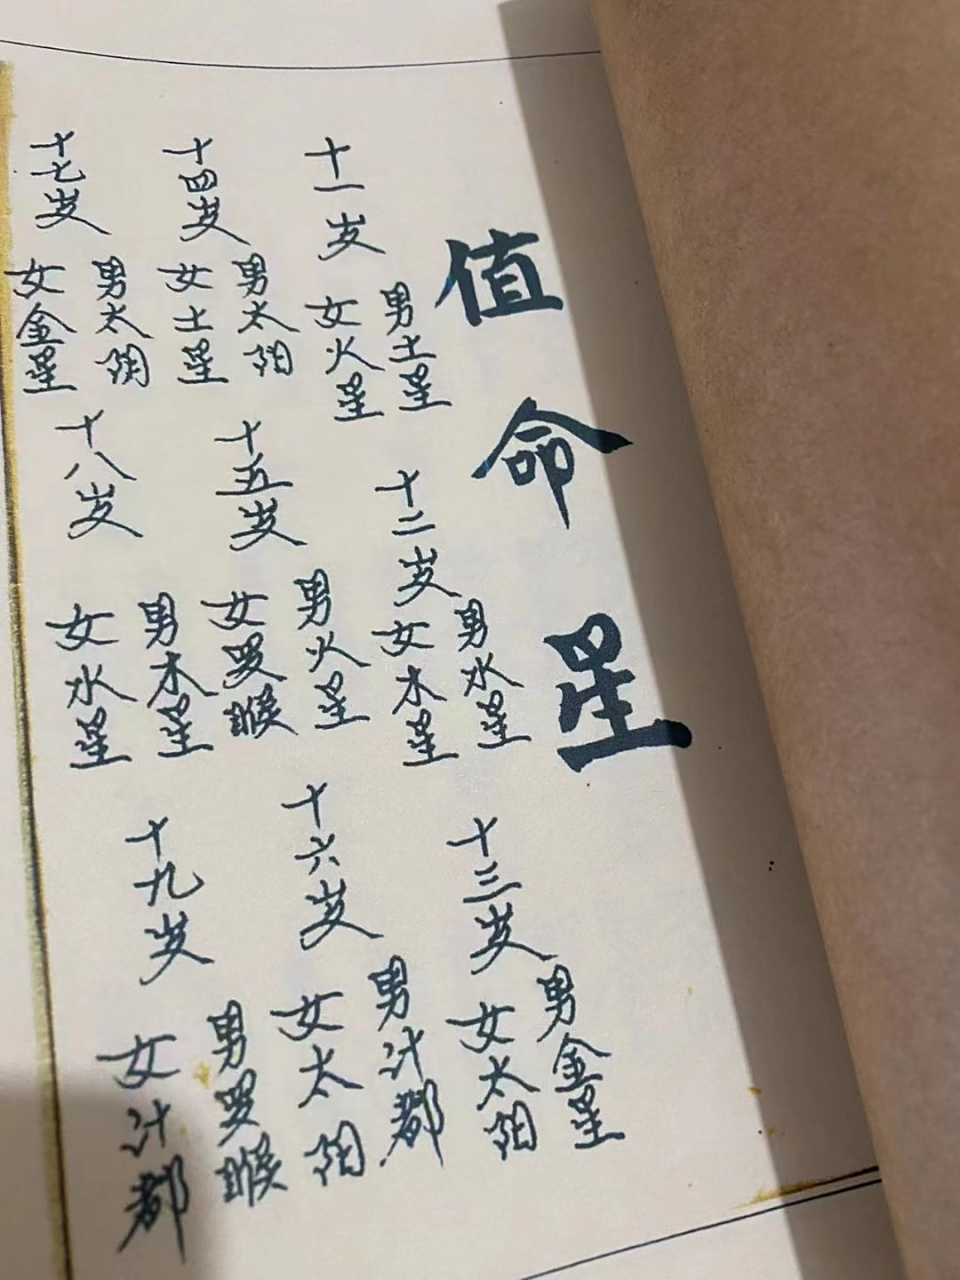 值命星
十一岁
男土星
女火星
十二岁
男水星
女木星
十三岁
男金星
女太阳
十四岁
男太阳
女土星
十五岁
男火星
女罗睺
十六岁
男计都
女太阳
十七岁
男太阴
女金星
十八岁
男木星
女水星
十九岁
男罗睺
女计都